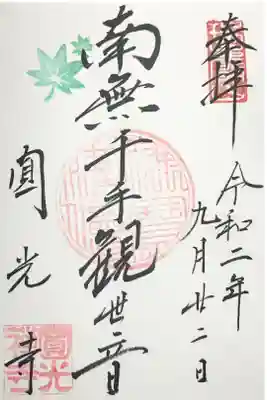 奉拝
令和二年
九月廿二日
南無千手觀世音
圓光寺